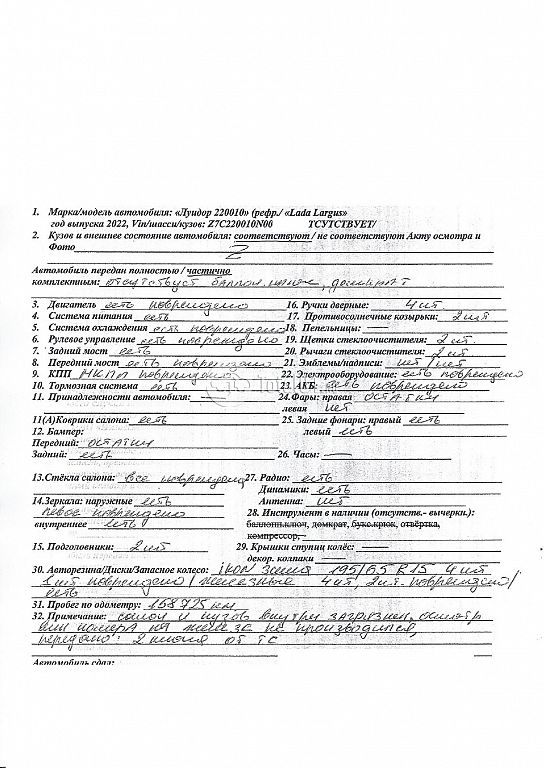 1. Марка/модель автомобиля: «Луидор 220010» (рефр./ «Lada Largus»
год выпуска 2022, Vin/шасси/кузов: Z7C220010N00 ТСУТСТВУЕТ/
2. Кузов и внешнее состояние автомобиля: соответствуют / не соответствуют Акту осмотра и
Фото
Автомобиль передан полностью / частично
комплектным: отсутствует баллон. ключ, домкрат
3. Двигатель есть повреждено 16. Ручки дверные: 4 шт
4. Система питания есть 17. Противосолнечные козырьки: 2 шт
5. Система охлаждения есть повреждено 18. Пепельницы: —
6. Рулевое управление есть повреждено 19. Щетки стеклоочистителя: 2 шт.
7. Задний мост есть 20. Рычаги стеклоочистителя: 2 шт
8. Передний мост есть повреждено 21. Эмблемы/надписи: нет / нет
9. КПП МКПП повреждено 22. Электрооборудование: есть повреждено
10. Тормозная система есть 23. АКБ: есть повреждено
11. Принадлежности автомобиля: — 24. Фары: правая остатки
левая нет
11(А)Коврики салона: есть 25. Задние фонари: правый есть
12. Бампер: левый есть
Передний: остатки
Задний: есть 26. Часы: —
13.Стёкла салона: все повреждено 27. Радио: есть
Динамики: есть
14.Зеркала: наружные есть Антенна: нет
левое повреждено 28. Инструмент в наличии (отсутств.- вычеркн.):
внутреннее есть баллонн.ключ, домкрат, букс.крюк, отвёртка,
компрессор,-
15. Подголовники: 2 шт 29. Крышки ступиц колёс: —
декор. колпаки —
30. Авторезина/Диски/Запасное колесо: IKON зима 195/65 R15 4 шт
1 шт повреждено / железные 4 шт, 2 шт. повреждено /
есть
31. Пробег по одометру: 158725 км
32. Примечание: салон и кузов внутри загрязнен, осмотр
вин номера на железе не производился,
передано: 2 ключа от ТС
Автомобиль сдал: